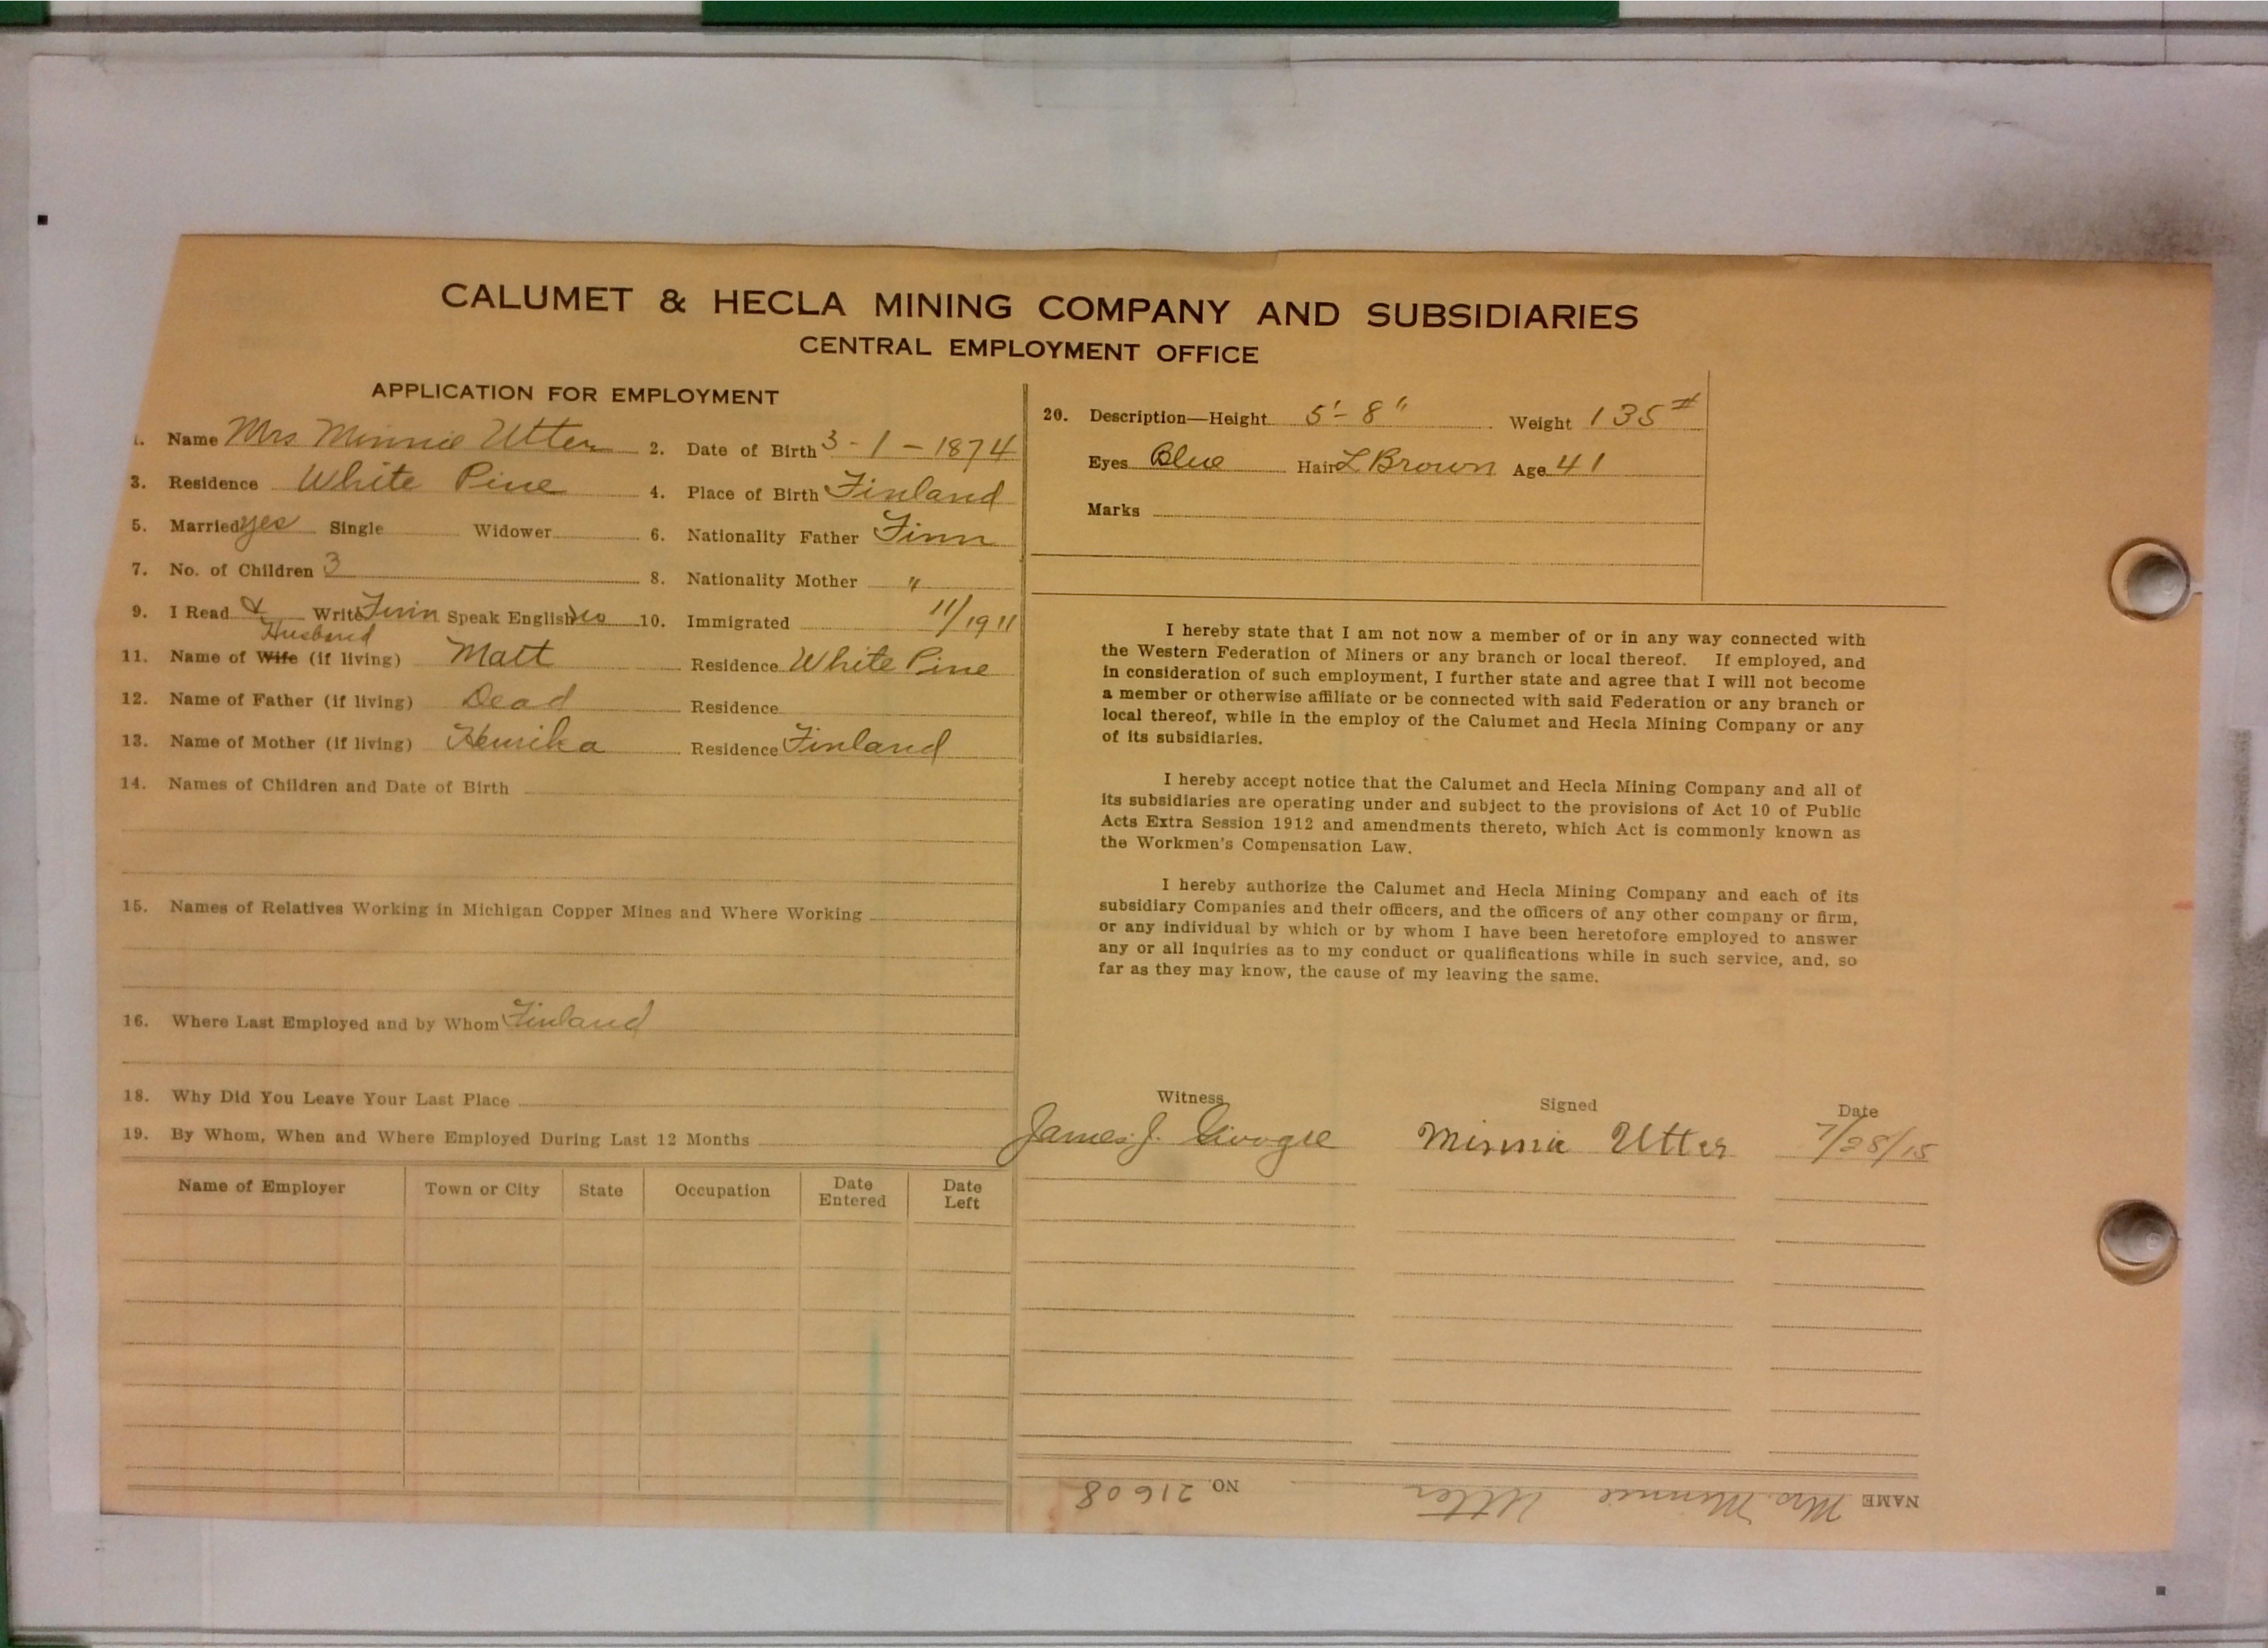 CALUMET & HECLA MINING COMPANY AND SUBSIDIARIES
CENTRAL EMPLOYMENT OFFICE
APPLICATION FOR EMPLOYMENT
1. Name Mrs Minnie Utter 2. Date of Birth 3-1-1874
3. Residence White Pine 4. Place of Birth Finland
5. Married yes Single Widower 6. Nationality Father Finn
7. No. of Children 3 8. Nationality Mother "
9. I Read & Write Finn Speak English No 10. Immigrated 11/1911
Husband
11. Name of Wife (if living) Matt Residence White Pine
12. Name of Father (if living) Dead Residence
13. Name of Mother (if living) Henrika Residence Finland
14. Names of Children and Date of Birth
15. Names of Relatives Working in Michigan Copper Mines and Where Working
16. Where Last Employed and by Whom Finland
18. Why Did You Leave Your Last Place
19. By Whom, When and Where Employed During Last 12 Months
Name of Employer Town or City State Occupation Date Entered Date Left
20. Description—Height 5'-8" Weight 135#
Eyes Blue Hair L Brown Age 41
Marks
I hereby state that I am not now a member of or in any way connected with
the Western Federation of Miners or any branch or local thereof. If employed, and
in consideration of such employment, I further state and agree that I will not become
a member or otherwise affiliate or be connected with said Federation or any branch or
local thereof, while in the employ of the Calumet and Hecla Mining Company or any
of its subsidiaries.
I hereby accept notice that the Calumet and Hecla Mining Company and all of
its subsidiaries are operating under and subject to the provisions of Act 10 of Public
Acts Extra Session 1912 and amendments thereto, which Act is commonly known as
the Workmen's Compensation Law.
I hereby authorize the Calumet and Hecla Mining Company and each of its
subsidiary Companies and their officers, and the officers of any other company or firm,
or any individual by which or by whom I have been heretofore employed to answer
any or all inquiries as to my conduct or qualifications while in such service, and, so
far as they may know, the cause of my leaving the same.
Witness Signed Date
James J. Minnie Utter 7/28/15
NAME Mrs. Minnie Utter NO. 21608